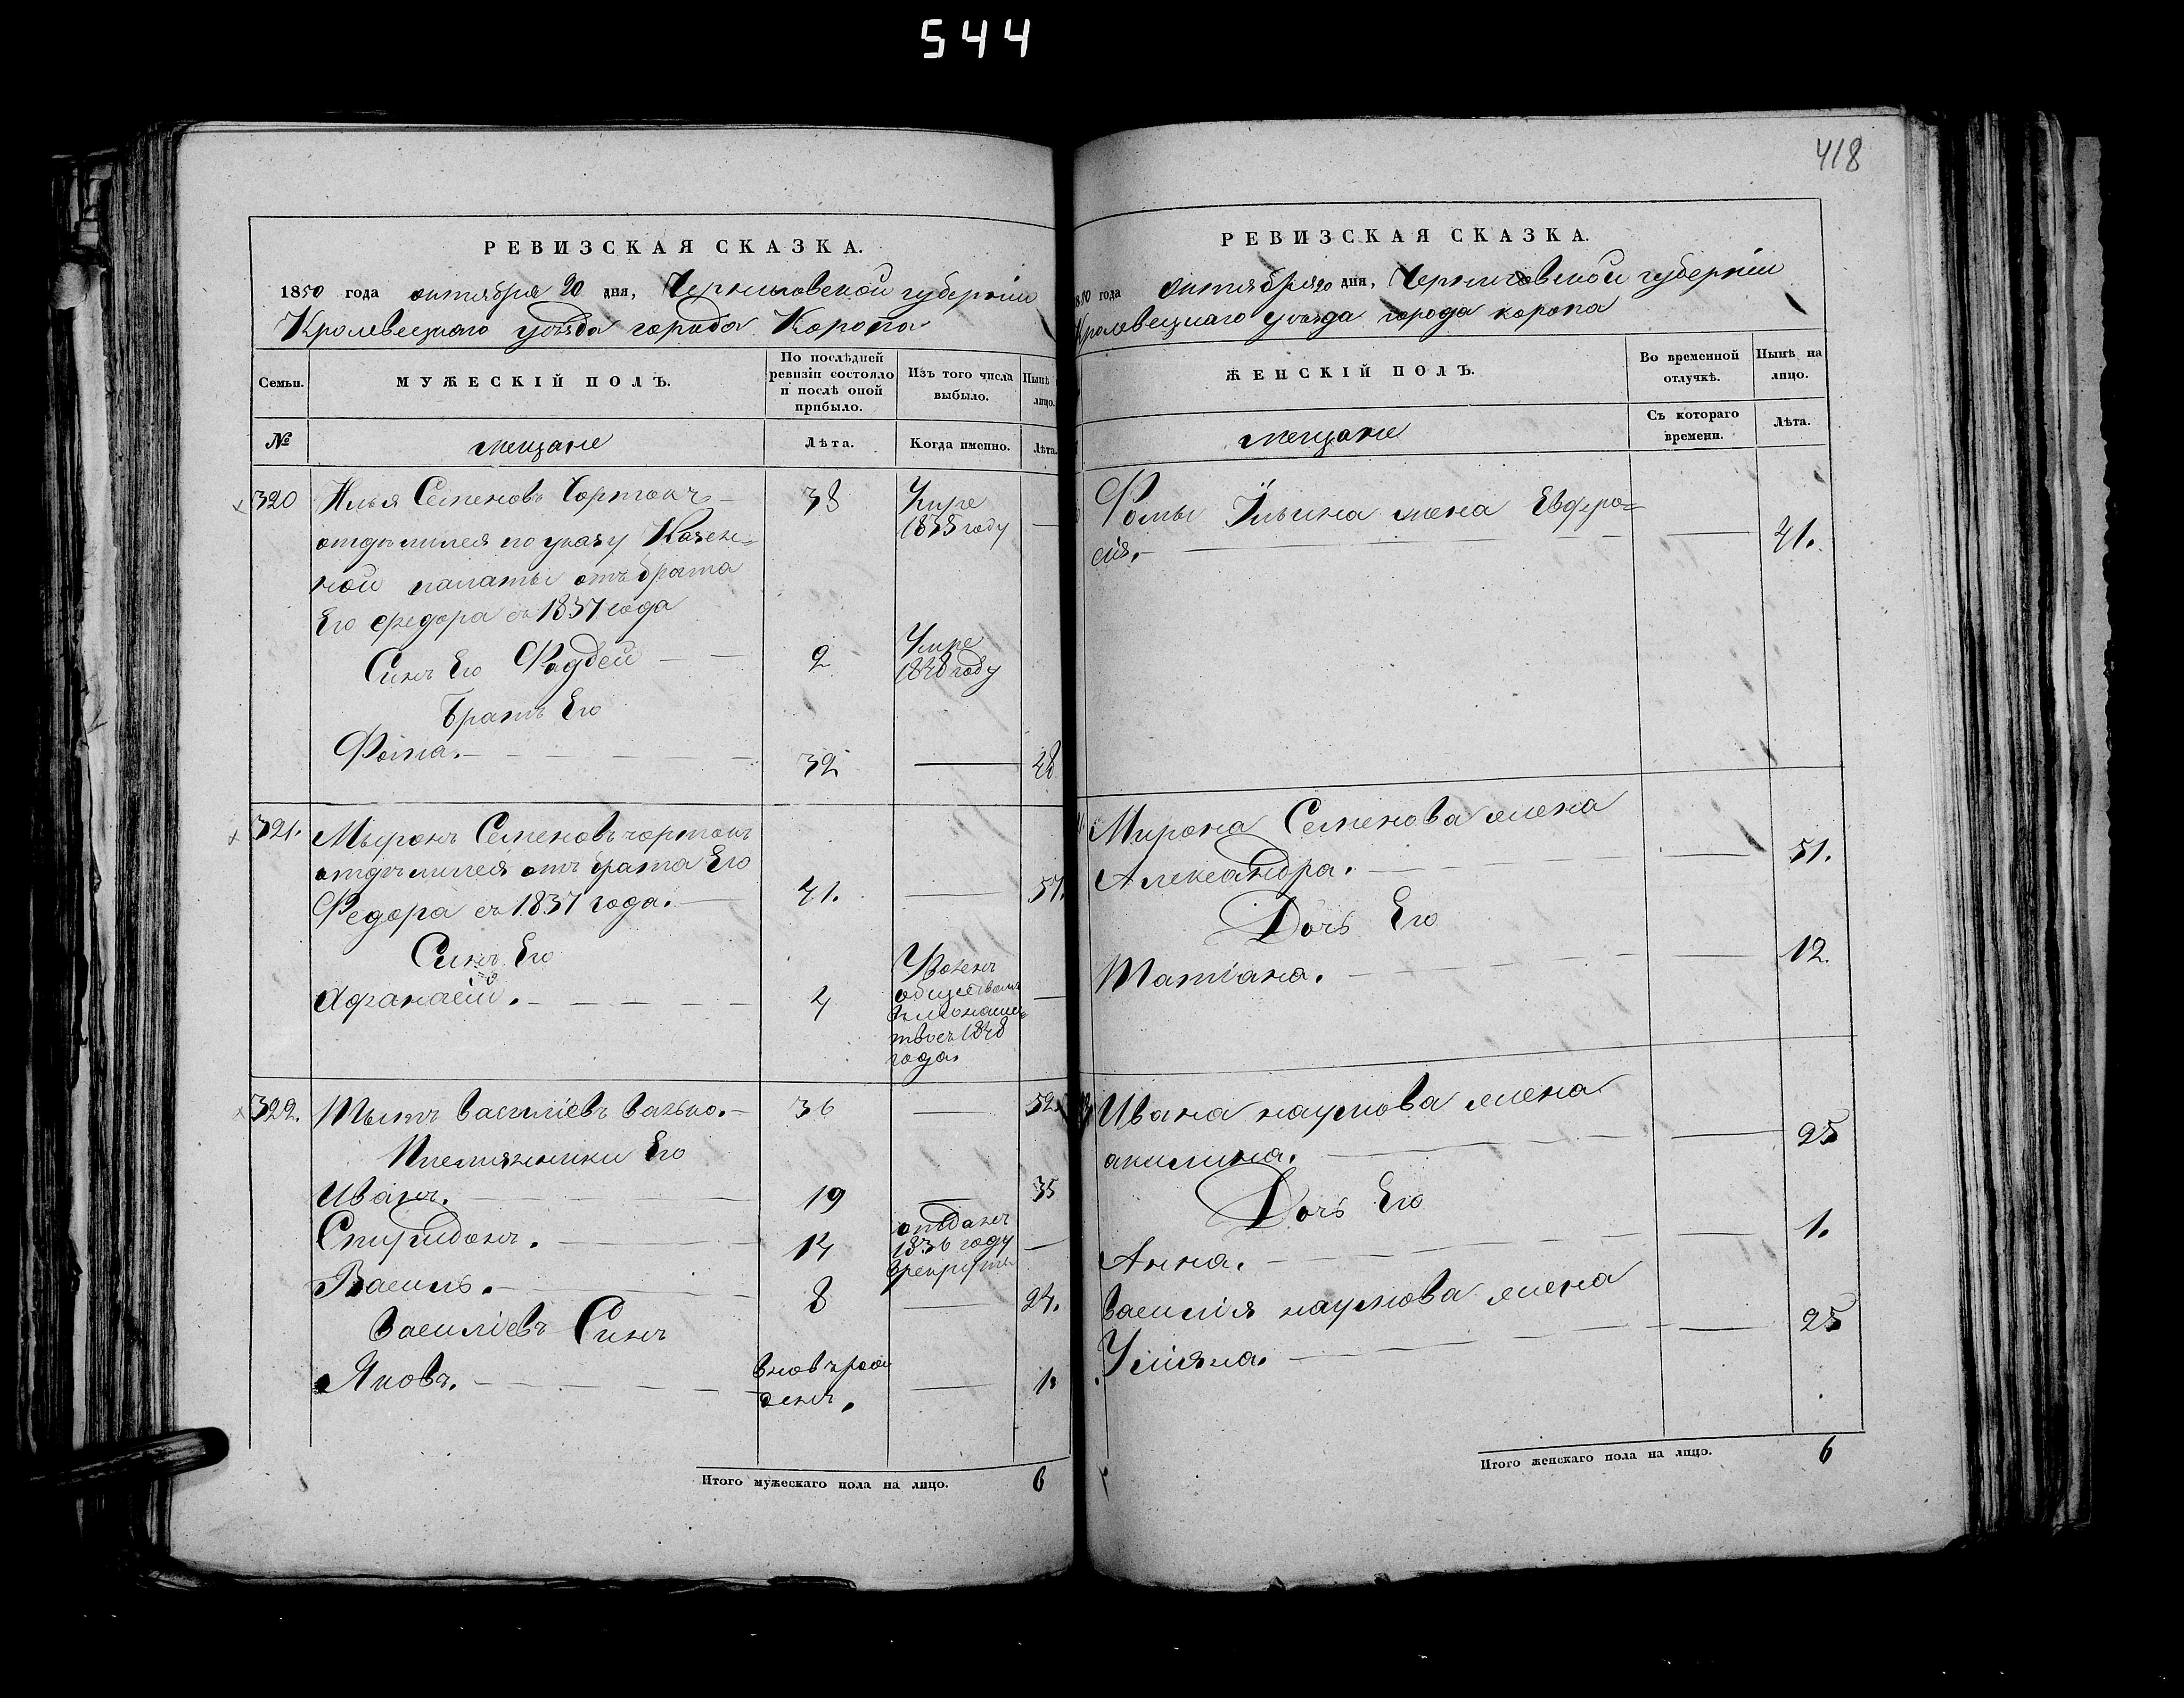 544
418
РЕВИЗСКАЯ СКАЗКА.
1850 года октября 20 дня, Черниговской губерніи
Кролевецкаго уѣзда города Коропа
Семьи.
МУЖЕСКІЙ ПОЛЪ.
По послѣдней
ревизіи состояло
и послѣ оной
прибыло.
Изъ того числа
выбыло.
Нынѣ
лицо.
№
мещане
Лѣта.
Когда именно.
Лѣта.
320 Илья Семеновъ Чортокъ 38 Умре
1838 году
отделился по указу Казен=
ной палаты отъ брата
Его Федора съ 1837 года
Синъ Его Фадбей 2 Умре
1848 году
Братъ Его
Фома. 32 48
321. Мыронъ Семеновъ чортокъ
отделился отъ брата Его
Федора съ 1837 года. 41. 57.
Синъ Его
Афанасій. 4
обществомъ
1848
года.
322. Тытъ василіевъ 36 52
Племянники Его
Иванъ. 19 35
Спиридонъ. 14 отданъ
1836 году
врекруты
Василь. 8 24.
василіевъ Синъ
Яковъ. вновъ рож
денъ. 1.
Итого мужескаго пола на лицо. 6
РЕВИЗСКАЯ СКАЗКА.
1850 года октября 20 дня, Черниговской губерніи
Кролевецкаго уѣзда города коропа
ЖЕНСКІЙ ПОЛЪ.
Во временной
отлучкѣ.
Нынѣ на
лицо.
мещане
Съ котораго
времени.
Лѣта.
Фомы Ильина жена Евфро=
сія. 41.
Мирона Семенова жена
Александра. 51.
Дочь Его
Татіана. 12.
Ивана наумова жена
акилина. 25
Дочь Его
Анна. 1.
василія наумова жена
Уліяна. 25
Итого женскаго пола на лицо. 6